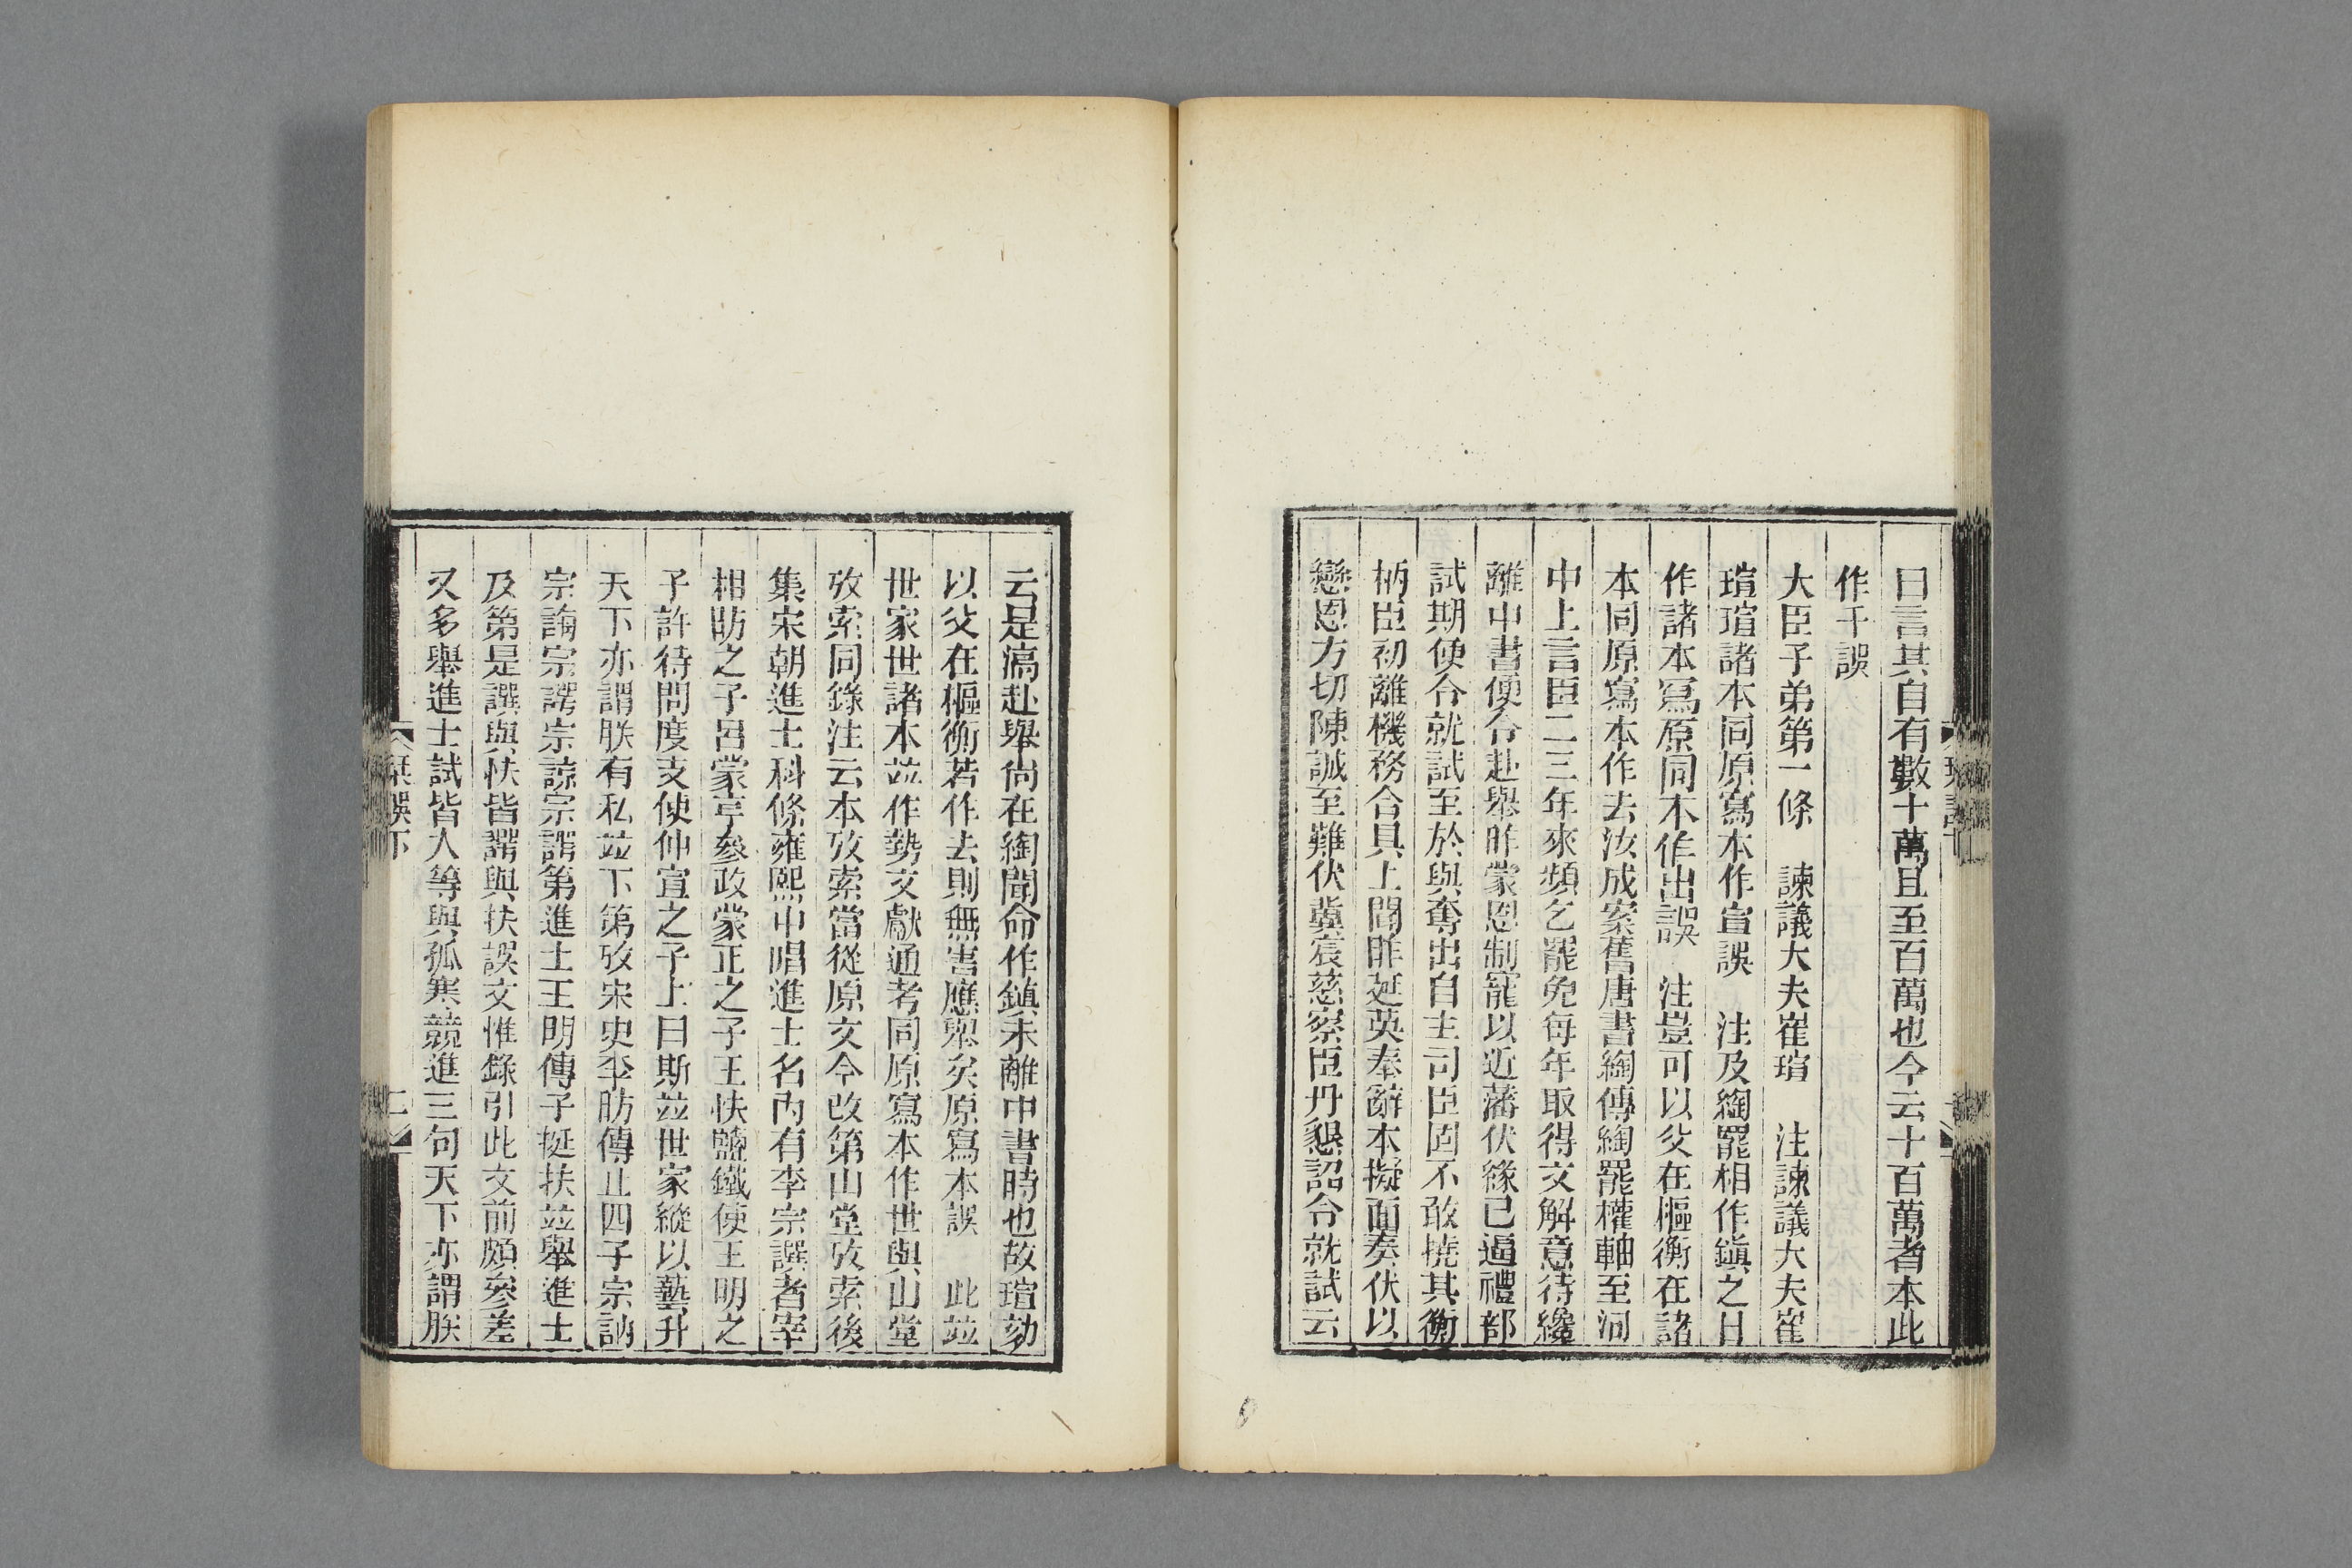 曰言其自有數十萬且至百萬也今云十百萬者本此
作千誤
大臣子弟第一條　諫議大夫崔瑄　注諫議大夫崔
瑄瑄諸本同原寫本作宣誤　注及綯罷相作鎮之日
作諸本寫原同木作出誤　注豈可以父在樞衡在諸
本同原寫本作去汝成案舊唐書綯傳綯罷權軸至河
中上言臣二三年來頻乞罷免每年取得文解意待纔
離中書便合赴舉昨蒙恩制寵以近藩伏緣已逼禮部
試期便令就試至於與奪出自主司臣固不敢撓其衡
柄臣初離機務合具上聞昨延英奉辭本擬面奏伏以
戀恩方切陳誠至難伏冀宸慈察臣丹懇詔令就試云
云是滈赴舉尙在綯聞命作鎮未離中書時也故瑄劾
以父在樞衡若作去則無害應舉矣原寫本誤　此竝
世家世諸本竝作勢文獻通考同原寫本作世與山堂
攷索同錄注云本攷索當從原文今改第山堂攷索後
集宋朝進士科條雍熙中唱進士名內有李宗諤者宰
相昉之子呂蒙亨參政蒙正之子王扶鹽鐵使王明之
子許待問度支使仲宣之子上曰斯竝世家縱以藝升
天下亦謂朕有私竝下第攷宋史李昉傳止四子宗訥
宗誨宗諤宗諒宗諤第進士王明傳子挺扶竝舉進士
及第是譔與怏皆諤與扶誤文惟錄引此文前頗參差
又多舉進士試皆人等與孤寒競進三句天下亦謂朕
栞誤下
二